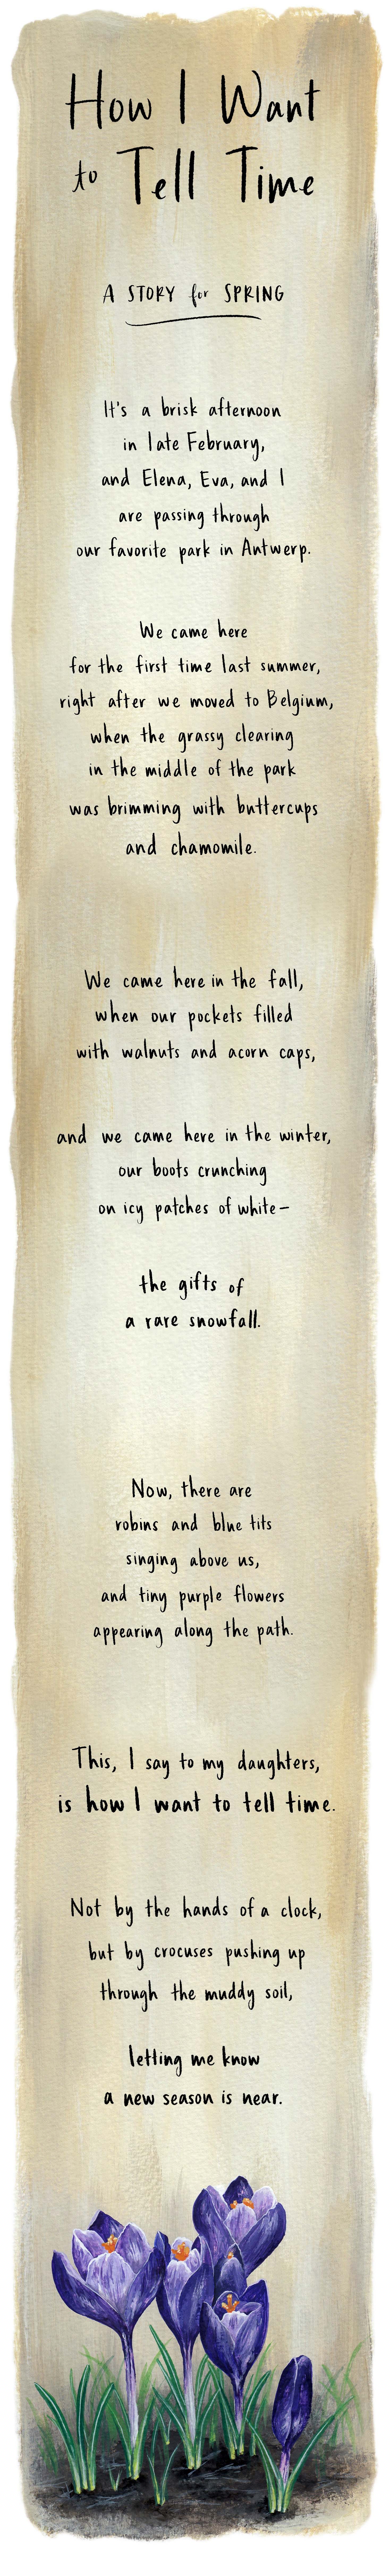 How I Want
to Tell Time
A STORY for SPRING
It's a brisk afternoon
in late February,
and Elena, Eva, and I
are passing through
our favorite park in Antwerp.
We came here
for the first time last summer,
right after we moved to Belgium,
when the grassy clearing
in the middle of the park
was brimming with buttercups
and chamomile.
We came here in the fall,
when our pockets filled
with walnuts and acorn caps,
and we came here in the winter,
our boots crunching
on icy patches of white—
the gifts of
a rare snowfall.
Now, there are
robins and blue tits
singing above us,
and tiny purple flowers
appearing along the path.
This, I say to my daughters,
is how I want to tell time.
Not by the hands of a clock,
but by crocuses pushing up
through the muddy soil,
letting me know
a new season is near.